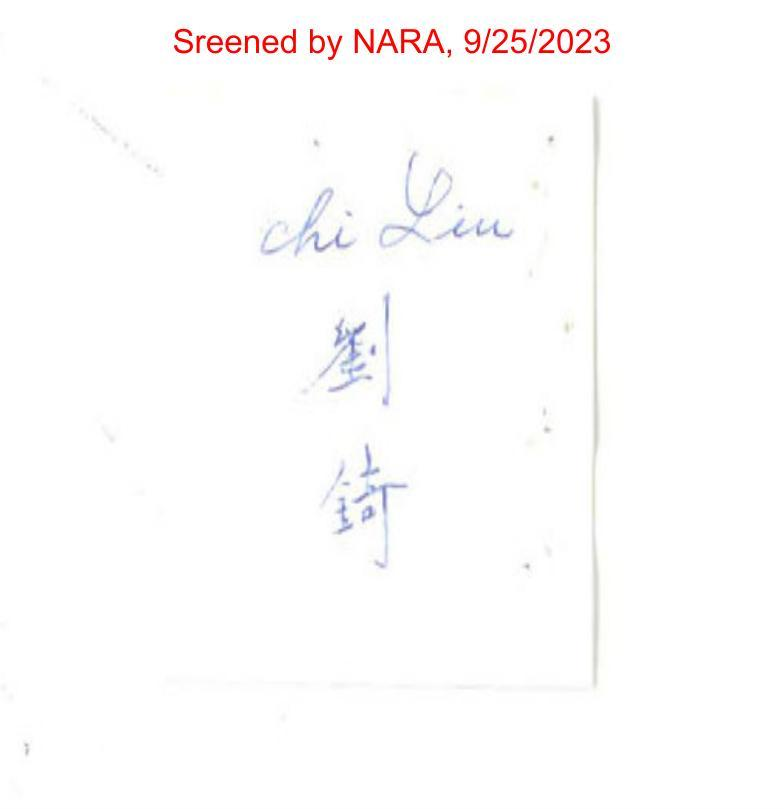 Sreened by NARA, 9/25/2023
chi Liu
劉
錡